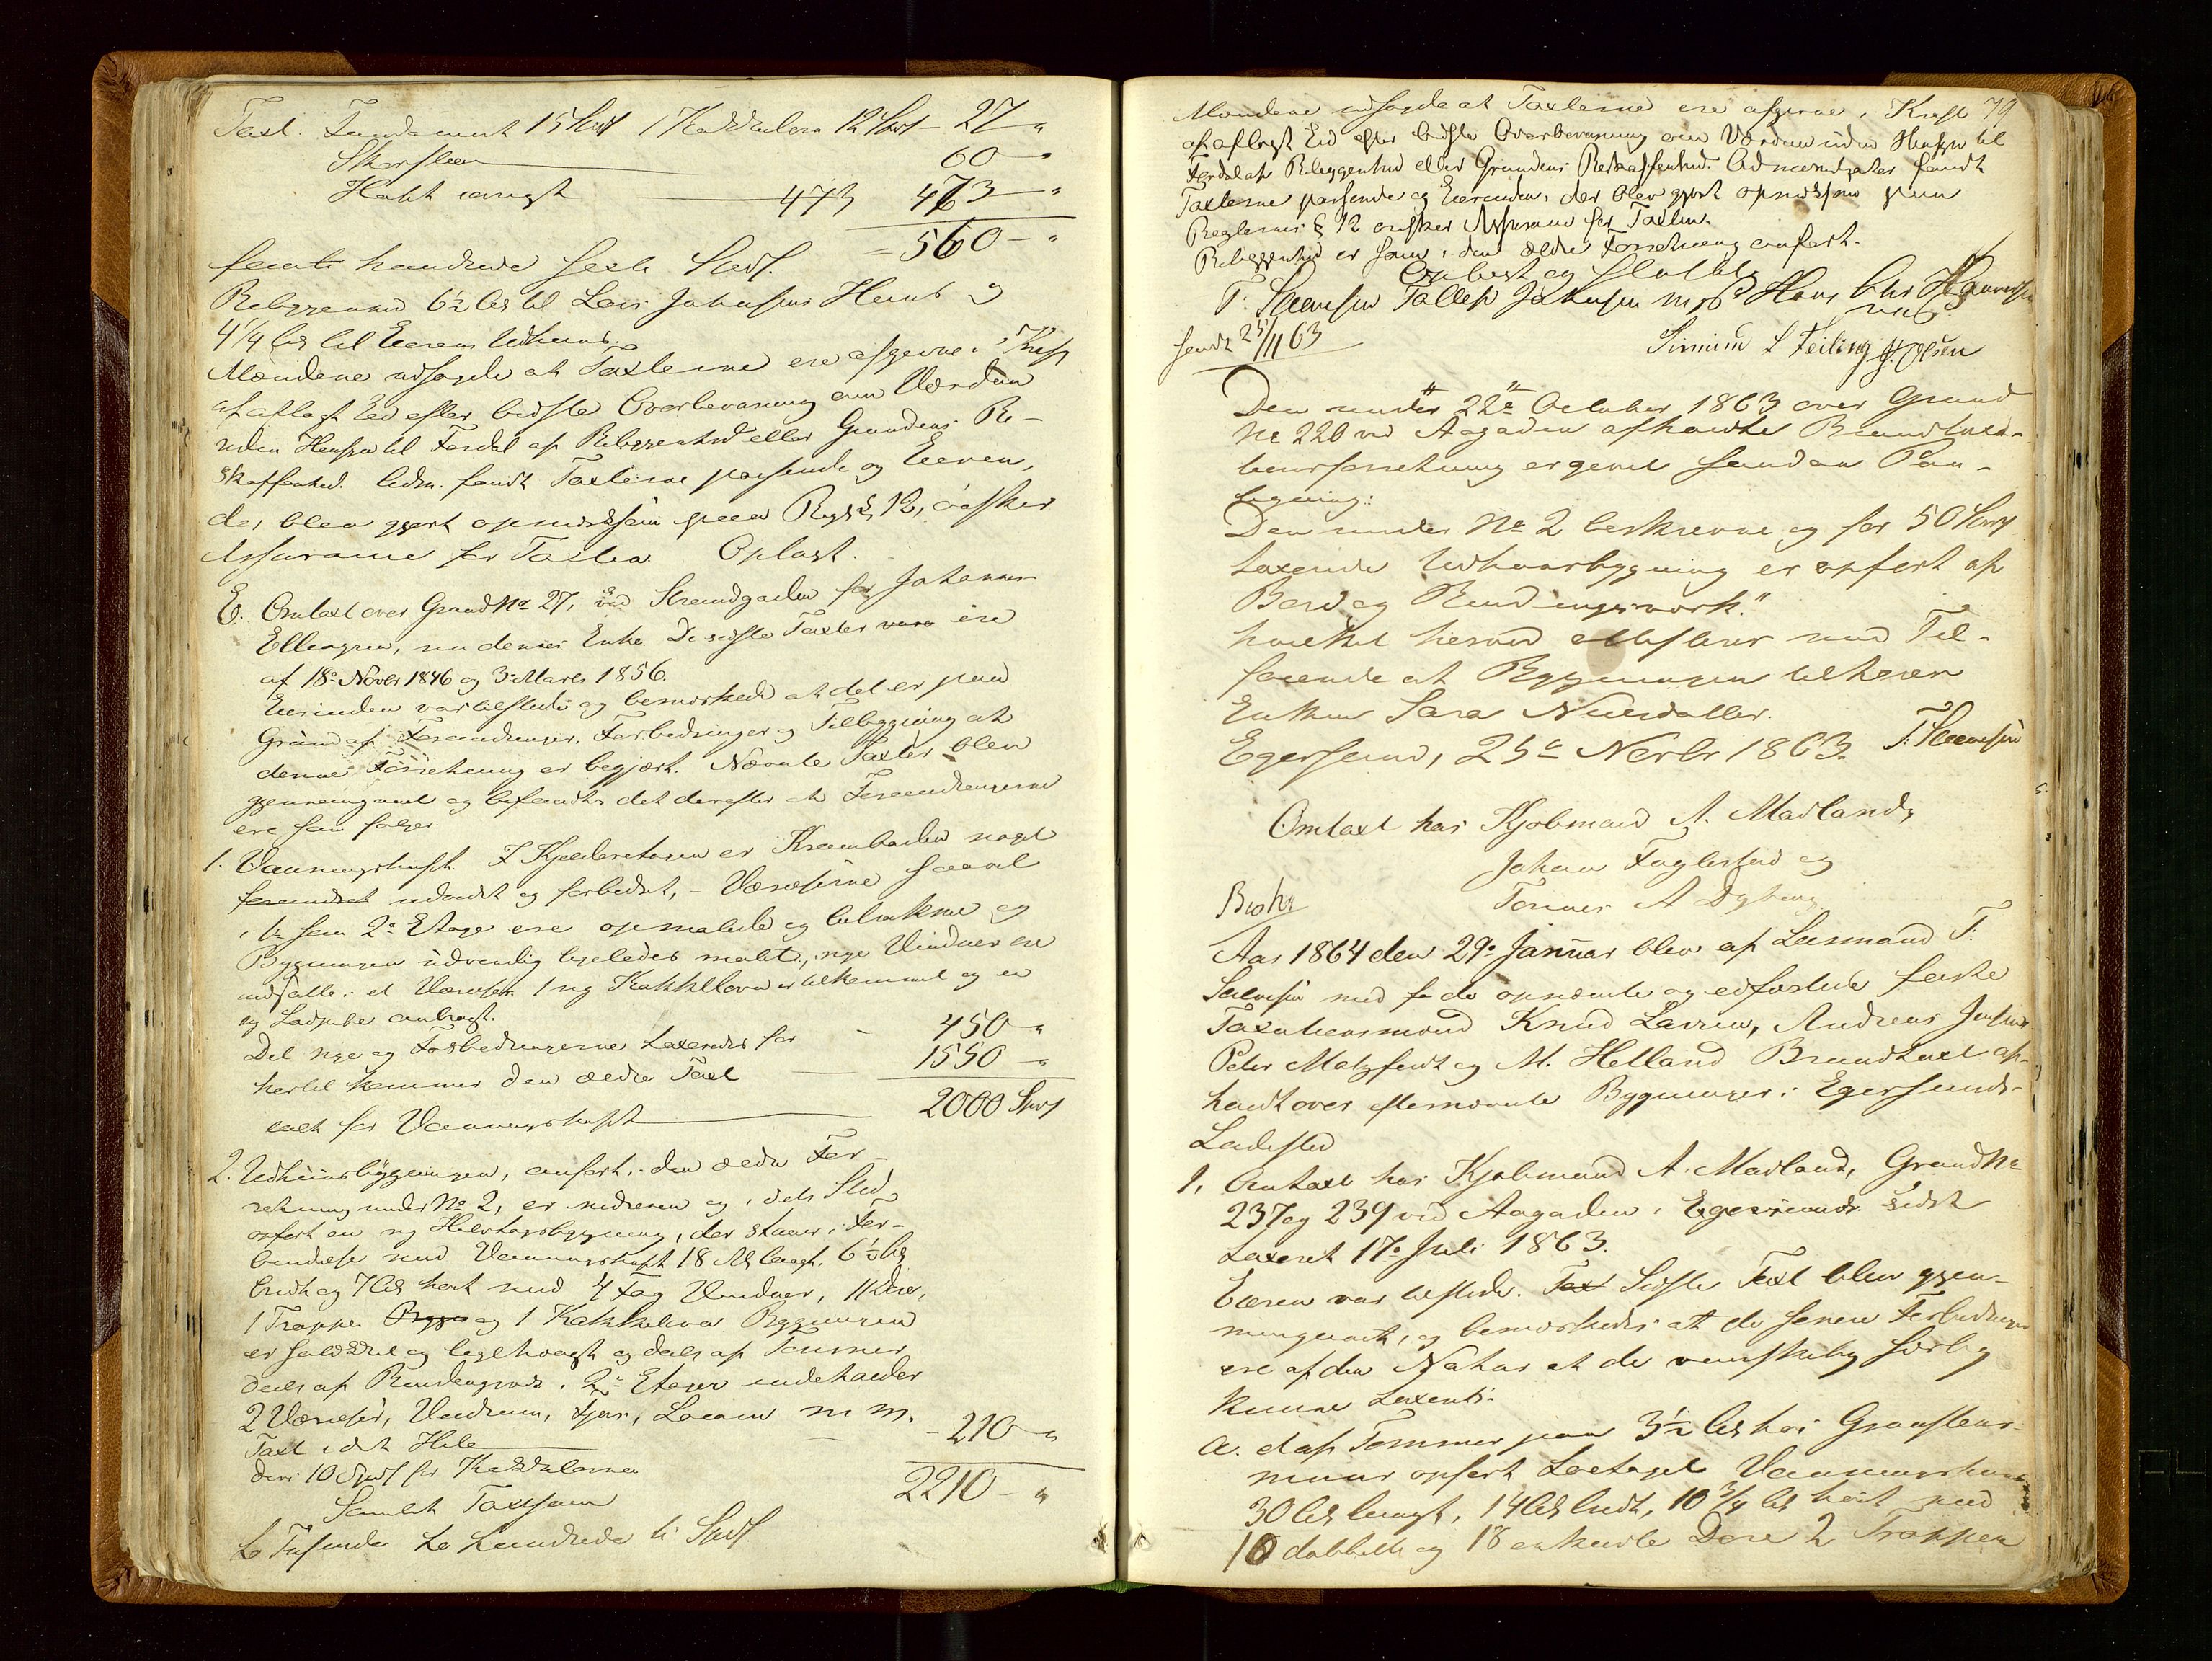 Taxt. Fundament 15 Spd 1 Kakkelovn 12 Spd – 27 "
Skorsteen 60 "
Huset øvrigt 473 473 "
= 560 – "
fem hundrede sexti Spd.
Beliggenhed 6½ Al. til Lars Johnsens Huus og
4¼ Al. til Eierens Udhuus.
Mændene udsagde at Taxterne ere afgivne i Kraft
af aflagt Ed efter bedste Overbevisning om Værdien
uden Hensyn til Fordel af Beliggenhed eller Grundens Be-
skaffenhed. Lidm. fandt Taxterne passende og Eieren,
der blev gjort opmærksom paa Regl. § 12, ønsker
Assurance for Taxten. Oplæst.
E. Omtaxt over Grund No 27, ved Strandgaden for Johannes
Ellingsen, nu dennes Enke. De sidste Taxter vare ere
af 18de Novbr 1846 og 3die Marts 1856.
Eierinden var tilstede og bemærkede at det er paa
Grund af Forandringer, Forbedringer og Tilbygning at
denne Forretning er begjært. Nævnte Taxter blev
gjennemgaaet og befandtes det derefter at Forandringerne
ere som følger
1. Vaaningshuset. I Kjælderetagen er Kramboden noget
forandret udvidet og forbedret, – Værelserne saavel
i 1te som 2den Etage ere opmalede og betrukne og
Bygningen udvendig ligeledes malet, nye Vinduer ere
indsatte i et Værelse. 1 ny Kakkelovn er tilkommet og en
ny Ladpibe anbragt.
Det nye og Forbedringerne taxeredes for – 450 "
hertil kommer den ældre Taxt 1550 – "
ialt for Vaaningshuset 2000 Spd
2. Udhuusbygningen, anført i den ældre For-
retning under No 2, er nedreven og i dets Sted
opført en ny Halvtagsbygning, der staaer i For-
bindelse med Vaaningshuset 18 Al. langt, 6½ Al.
bredt og 7 Al. høit med 4 Fag Vinduer, 11 Døre,
1 Trappe Bygge og 1 Kakkelovn. Bygningen
er helklædt og teglhængt og deels af Tømmer
deels af Bindingsværk. 2de Etager indeholder
2 Værelser, Vedrum, Fjøs, Laave m. m.
Taxt i det Hele – 210 – "
deri 10 Spd for Kakkelovnen
Samlet Taxtsum 2210 – "
to Tusende to hundrede ti Spd
79
Mændene udsagde at Taxterne ere afgivne i Kraft
af aflagt Ed efter bedste Overbevisning om Værdien uden Hensyn til
Fordel af Beliggenhed eller Grundens Beskaffenhed. Lidmændene fandt
Taxterne passende og Eierinden, der blev gjort opmærksom paa
Reglernes § 12 ønsker Assurance for Taxten.
Beliggenhed er som i den ældre Forretning anført.
Oplæst og sluttet
T: Salvesen Tollef Johnsen m. p. P. Hans Chr Haaversen
m. p. P.
sendt 25/11 63
Simund S Feiling J. Olsen
Den under 22de October 1863 over Grund
No 220 ved Aagaden afholdte Brandtaxa-
tionsforretning er givet saadan Paa-
tegning:
"Den under No 2 beskrevne og for 50 Spd
taxerede Udhuusbygning er opført af
Bord og Bindingsværk."
hvilket herved attesteres med Til-
føiende at Bygningen tilhører
Enken Sara Nuusdatter.
Egersund, 25de Novbr 1863. T: Salvesen
Omtaxt hos Kjøbmand A. Madland,
Johan Fuglestad og
Tønnes A Dybing.
Besk.
Aar 1864 den 29de Januar blev af Lensmand T.
Salvesen med før de opnævnte og edfæstede faste
Taxationsmænd Knud Larsen, Andreas Jensen
Peter Motzfeldt og M. Helland Brandtaxt af-
holdt over efternævnte Bygninger i Egersunds
Ladested
1, Omtaxt hos Kjøbmand A. Madland, Grund No
237 og 239 ved Aagaden i Egersund sidst
taxeret 17de Juli 1863.
Eieren var tilstede. Tax Sidste Taxt blev gjen-
nemgaaet, og bemærkedes at de senere Forbedringer
ere af den Natur at de vanskelig særlig
kunne taxeres.
a. et af Tømmer paa 3½ Al. høi Graasteens-
muur opført toetages Vaaningshuus
30 Al. langt, 14 Al. bredt, 10 3/4 Al. høit med
10 dobbelte og 18 enkelte Døre 2 Trapper